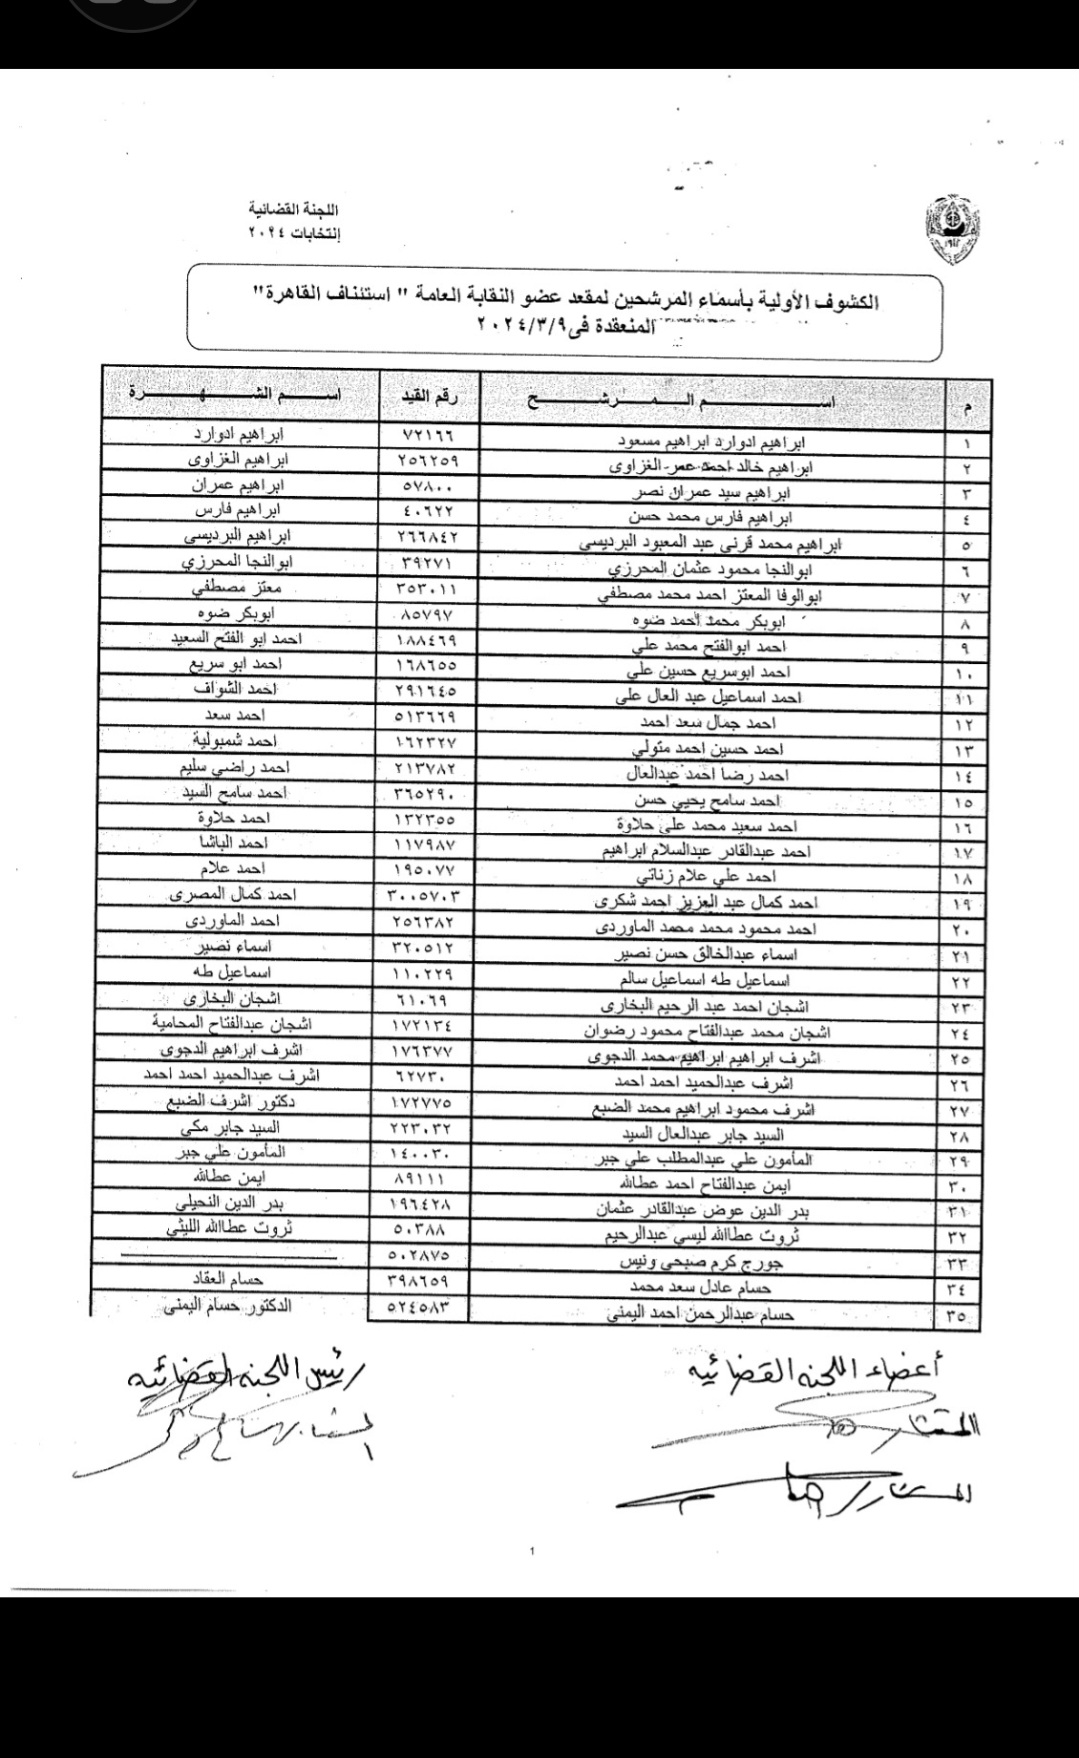 اللجنة القضائية
إنتخابات ٢٠٢٤
١٩١٢
الكشوف الأولية بأسماء المرشحين لمقعد عضو النقابة العامة " استئناف القاهرة"
المنعقدة فى ٢٠٢٤/٣/٩
م اســــم الـــمـــرشـــح رقم القيد اســـم الشـــهـــرة
١ ابراهيم ادوارد ابراهيم مسعود ٧٢١٦٦ ابراهيم ادوارد
٢ ابراهيم خالد احمد عمر الغزاوى ٢٥٦٢٥٩ ابراهيم الغزاوى
٣ ابراهيم سيد عمران نصر ٥٧٨٠٠ ابراهيم عمران
٤ ابراهيم فارس محمد حسن ٤٠٦٢٢ ابراهيم فارس
٥ ابراهيم محمد قرنى عبد المعبود البرديسى ٢٦٦٨٤٢ ابراهيم البرديسى
٦ ابوالنجا محمود عثمان المحرزي ٣٩٢٧١ ابوالنجا المحرزي
٧ ابوالوفا المعتز احمد محمد مصطفي ٣٥٣٠١١ معتز مصطفي
٨ ابوبكر محمد احمد ضوه ٨٥٧٩٧ ابوبكر ضوه
٩ احمد ابوالفتح محمد علي ١٨٨٤٦٩ احمد ابو الفتح السعيد
١٠ احمد ابوسريع حسين علي ١٦٨٦٥٥ احمد ابو سريع
١١ احمد اسماعيل عبد العال على ٢٩١٦٤٥ احمد الشواف
١٢ احمد جمال سعد احمد ٥١٣٦٦٩ احمد سعد
١٣ احمد حسين احمد متولي ١٦٢٣٢٧ احمد شمبولية
١٤ احمد رضا احمد عبدالعال ٢١٣٧٨٢ احمد راضي سليم
١٥ احمد سامح يحيي حسن ٣٦٥٢٩٠ احمد سامح السيد
١٦ احمد سعيد محمد على حلاوة ١٣٢٣٥٥ احمد حلاوة
١٧ احمد عبدالقادر عبدالسلام ابراهيم ١١٧٩٨٧ احمد الباشا
١٨ احمد علي علام زناتي ١٩٥٠٧٧ احمد علام
١٩ احمد كمال عبد العزيز احمد شكرى ٣٠٠٥٧٠٣ احمد كمال المصرى
٢٠ احمد محمود محمد محمد الماوردى ٢٥٦٣٨٢ احمد الماوردى
٢١ اسماء عبدالخالق حسن نصير ٣٢٠٥١٢ اسماء نصير
٢٢ اسماعيل طه اسماعيل سالم ١١٠٢٢٩ اسماعيل طه
٢٣ اشجان احمد عبد الرحيم البخارى ٦١٠٦٩ اشجان البخارى
٢٤ اشجان محمد عبدالفتاح محمود رضوان ١٧٢١٣٤ اشجان عبدالفتاح المحامية
٢٥ اشرف ابراهيم ابراهيم محمد الدجوى ١٧٦٣٧٧ اشرف ابراهيم الدجوى
٢٦ اشرف عبدالحميد احمد احمد ٦٢٧٣٠ اشرف عبدالحميد احمد احمد
٢٧ اشرف محمود ابراهيم محمد الضبع ١٧٢٧٧٥ دكتور اشرف الضبع
٢٨ السيد جابر عبدالعال السيد ٢٢٣٠٣٢ السيد جابر مكى
٢٩ المأمون علي عبدالمطلب علي جبر ١٤٠٠٣٠ المأمون علي جبر
٣٠ ايمن عبدالفتاح احمد عطالله ٨٩١١١ ايمن عطالله
٣١ بدر الدين عوض عبدالقادر عثمان ١٩٦٤٢٨ بدر الدين النحيلي
٣٢ ثروت عطاالله ليسي عبدالرحيم ٥٠٣٨٨ ثروت عطاالله الليثي
٣٣ جورج كرم صبحي ونيس ٥٠٢٨٧٥
٣٤ حسام عادل سعد محمد ٣٩٨٦٥٩ حسام العقاد
٣٥ حسام عبدالرحمن احمد اليمني ٥٢٤٥٨٣ الدكتور حسام اليمنى
أعضاء اللجنه القضائيه
رئيس اللجنه القضائيه
المستشار
المستشار
1